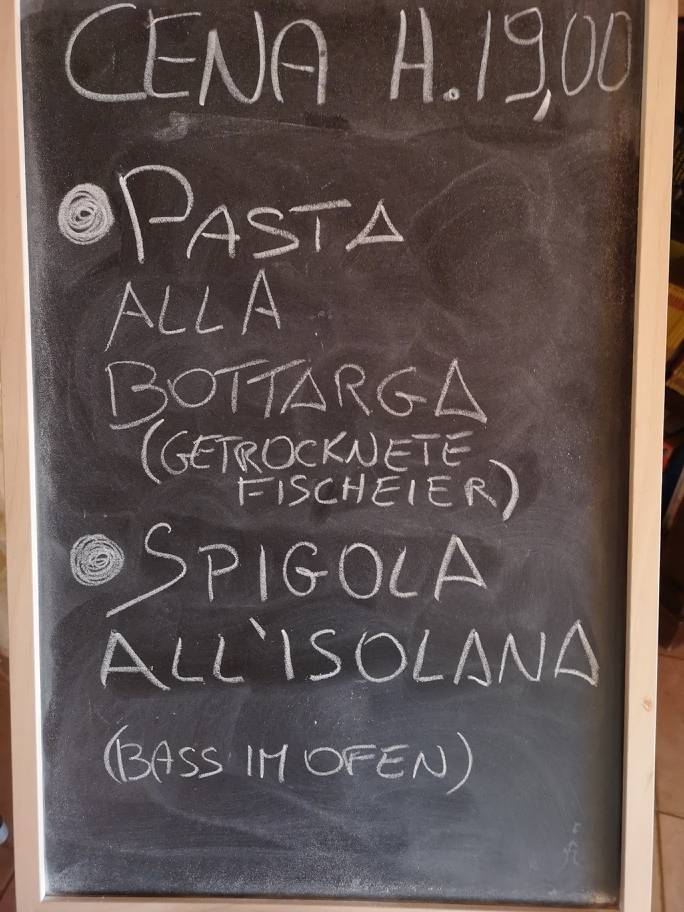 CENA H.19,00
PASTA
ALLA
BOTTARGA
(GETROCKNETE
FISCHEIER)
SPIGOLA
ALL'ISOLANA
(BASS IM OFEN)